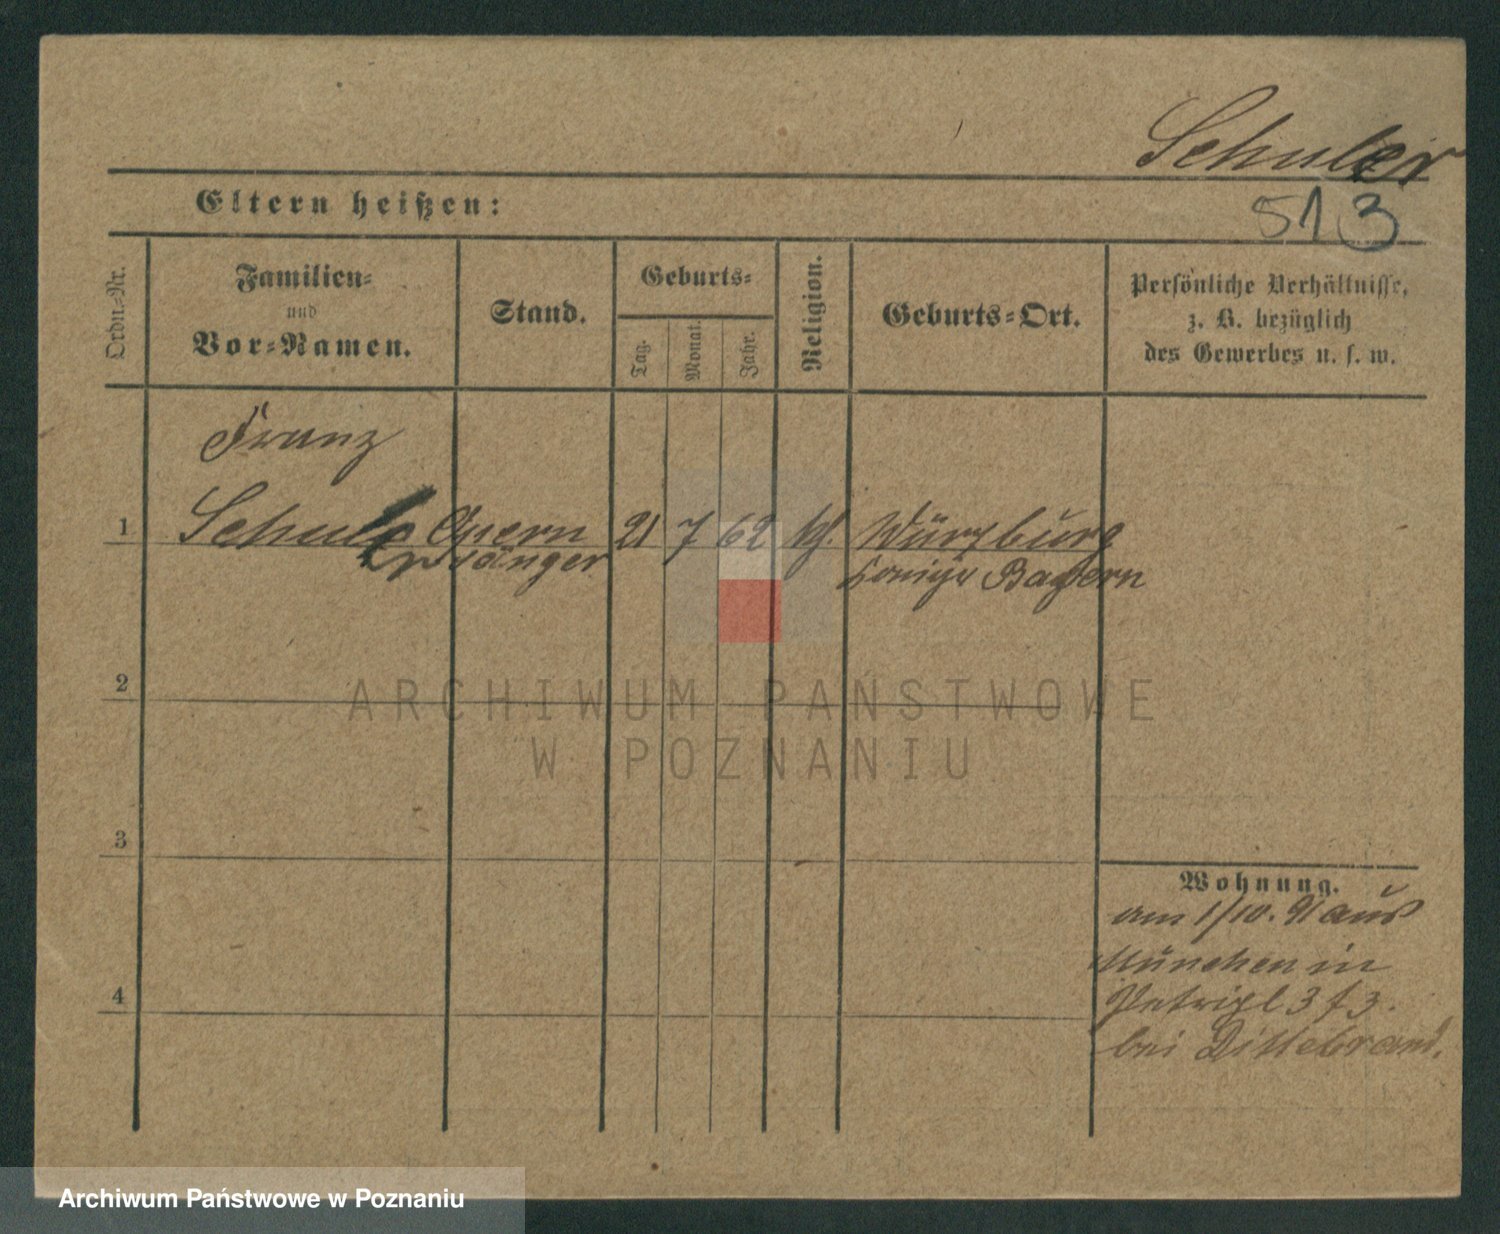 Schuler
513
Eltern heißen:
Ordn.-Nr.
Familien-
und
Vor-Namen.
Stand.
Geburts-
Tag.
Monat.
Jahr.
Religion.
Geburts-Ort.
Persönliche Verhältnisse,
z. B. bezüglich
des Gewerbes u. s. w.
Franz
1 Schuler Opern 21 7 62 kf. Würzburg
sänger Königr Bayern
2
ARCHIWUM PAŃSTWOWE
W POZNANIU
3
Wohnung.
am 1/10. 91 aus
München in
4
Petripl 3 f 3.
bei Dittebrand.
Archiwum Państwowe w Poznaniu